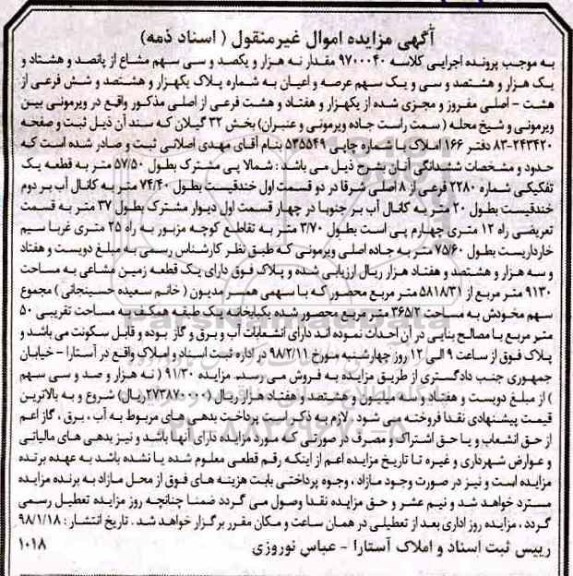 آگهی مزایده اموال غیرمنقول ( اسناد ذمه)
به موجب پرونده اجرایی کلاسه ۹۷۰۰۰۴۰ مقدار نه هزار و یکصد و سی سهم مشاع از پانصد و هشتاد و
یک هزار و هشتصد و سی و یک سهم عرصه و اعیان به شماره پلاک یکهزار و هشتصد و شش فرعی از
هشت - اصلی مفروز و مجزی شده از یکهزار و هفتاد و هشت فرعی از اصلی مذکور واقع در ویرمونی بین
ویرمونی و شیخ محله ( سمت راست جاده ویرمونی و عنبران) بخش ۳۲ گیلان که سند آن ذیل ثبت و صفحه
۸۳-۲۴۳۴۲۰ دفتر ۱۶۶ املاک با شماره چاپی ۵۳۵۵۴۹ بنام آقای مهدی اصلانی ثبت و صادر شده است که
حدود و مشخصات ششدانگی آن به شرح ذیل می باشد : شمالا پی مشترک بطول ۵۷/۵۰ متر به قطعه یک
تفکیکی شماره ۲۲۸۰ فرعی از ۸ اصلی شرقا در دو قسمت اول خندقیست بطول ۷۴/۴۰ متر به کانال آب بر دوم
خندقیست بطول ۲۰ متر به کانال آب بر جنوبا در چهار قسمت اول دیوار مشترک بطول ۳۷ متر به قسمت
تعریضی راه ۱۲ متری چهارم پی است بطول ۳/۷۰ متر به تقاطع کوچه مزبور به راه ۲۵ متری غربا سیم
خارداریست بطول ۷۵/۶۰ متر به جاده اصلی ویرمونی که طبق نظر کارشناس رسمی به مبلغ دویست و هفتاد
و سه هزار و هشتصد و هفتاد هزار ریال ارزیابی شده و پلاک فوق دارای یک قطعه زمین مشاعی به مساحت
۹۱۳۰ متر مربع از ۵۸۱۸/۳۱ متر مربع محصور که با سهمی همسر مدیون ( خانم سعیده حسینجانی ) مجموع
سهم مخودش به مساحت ۳۶۵/۲ متر مربع محصور شده یکبابخانه یک طبقه همکف به مساحت تقریبی ۵۰
متر مربع با مصالح بنایی در آن احداث نموده اند دارای انشعابات آب و برق و گاز بوده و قابل سکونت می باشد و
پلاک فوق از ساعت ۹ الی ۱۲ روز چهارشنبه مورخ ۹۸/۲/۱۱ در اداره ثبت اسناد و املاک واقع در آستارا - خیابان
جمهوری جنب دادگستری از طریق مزایده به فروش می رسد. مزایده ۹۱/۳۰ ( نه هزار و صد و سی سهم
) از مبلغ دویست و هفتاد و سه میلیون و هشتصد و هفتاد هزار ریال (۲۷۳۸۷۰۰۰۰ریال) شروع و به بالاترین
قیمت پیشنهادی نقدا فروخته می شود . لازم به ذکر است پرداخت بدهی های مربوط به آب ، برق ، گاز اعم
از حق انشعاب و یا حق اشتراک و مصرف در صورتی که مورد مزایده دارای آنها باشد و نیز بدهی های مالیاتی
و عوارض شهرداری و غیره تا تاریخ مزایده اعم از اینکه رقم قطعی معلوم شده یا نشده باشد به عهده برنده
مزایده است و نیز در صورت وجود مازاد ، وجوه پرداختی بابت هزینه های فوق از محل مازاد به برنده مزایده
مسترد خواهد شد و نیم عشر و حق مزایده نقدا وصول می گردد ضمنا چنانچه روز مزایده تعطیل رسمی
گردد ، مزایده روز اداری بعد از تعطیلی در همان ساعت و مکان مقرر برگزار خواهد شد . تاریخ انتشار : ۹۸/۱/۱۸
رییس ثبت اسناد و املاک آستارا - عباس نوروزی ۱۰۱۸